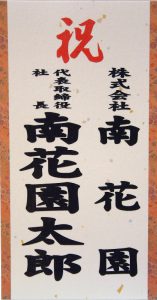 祝
株式会社 南花園
代表取締役
社長 南花園太郎